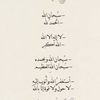 - سبحان الله
- الحمد لله
- لا إله إلا الله
- الله أكبر
- سبحان الله وبحمده
- سبحان الله العظيم
- أستغفر الله وأتوب إليه
- لا حول ولا قوة إلا بالله